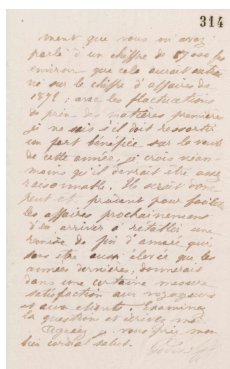 314
ment que nous en avez
parlé d'un chiffre de 17000 frs
environ que cela aurait
né sur le chiffre d'affaires de
avec les fluctuations
de prix des matières premières
je ne sais s'il doit ressortir
un fort bénéfice sur la vente
de cette année, je crois néan-
moins qu'il devrait être assez
raisonnable. Il serait donc
et pour faciliter
les affaires prochainement
d'en arriver à rétablir une
remise de fin d'année qui
sans être aussi élevée que les
années dernières, donnerait
dans une certaine mesure
satisfaction aux voyageurs
et aux clients. Examinez
la question et écrivez moi.
Agréez, je vous prie, mon
bien cordial salut.